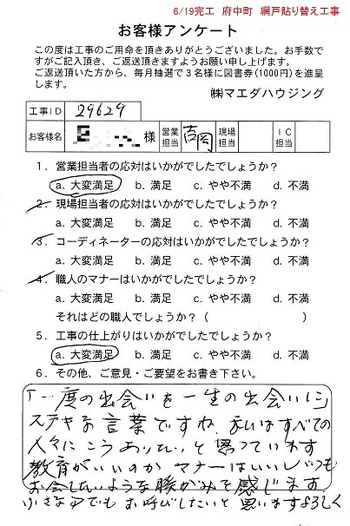 6/19完工 府中町 網戸貼り替え工事
お客様アンケート
この度は工事のご用命を頂きありがとうございました。お手数で
すがご記入頂き、ご返送頂きますようお願い申し上げます。
ご返送頂いた方から、毎月抽選で3名様に図書券(1000円)を進呈
します。
㈱マエダハウジング
工事ID 29629
お客様名 様 営業担当 吉岡 現場担当 IC担当
1.営業担当者の応対はいかがでしたでしょうか?
a.大変満足 b.満足 c.やや不満 d.不満
2.現場担当者の応対はいかがでしたでしょうか?
a.大変満足 b.満足 c.やや不満 d.不満
3.コーディネーターの応対はいかがでしたでしょうか?
a.大変満足 b.満足 c.やや不満 d.不満
4.職人のマナーはいかがでしたでしょうか?
a.大変満足 b.満足 c.やや不満 d.不満
それはどの職人でしょうか?(
5.工事の仕上がりはいかがでしたでしょうか?
a.大変満足 b.満足 c.やや不満 d.不満
6.その他、ご意見・ご要望をお書き下さい。
「一度の出会いを一生の出会いに」
ステキな言葉ですね。私はすべての
人々にこうありたいと思っています
教育がいいのか マナーはいいしいつも
お会いしたいような暖かみを感じます
小さな事でもお呼びしたいと思いますよろしく